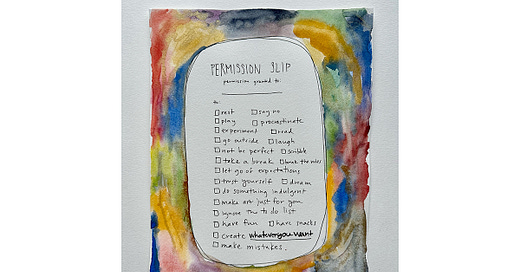 PERMISSION SLIP
permission granted to:
to:
rest say no
play procrastinate
experiment read
go outside laugh
not be perfect scribble
take a break break the rules
let go of expectations
trust yourself dream
do something indulgent
make art just for you
ignore the to do list
have fun have snacks
create whatever you want
make mistakes.